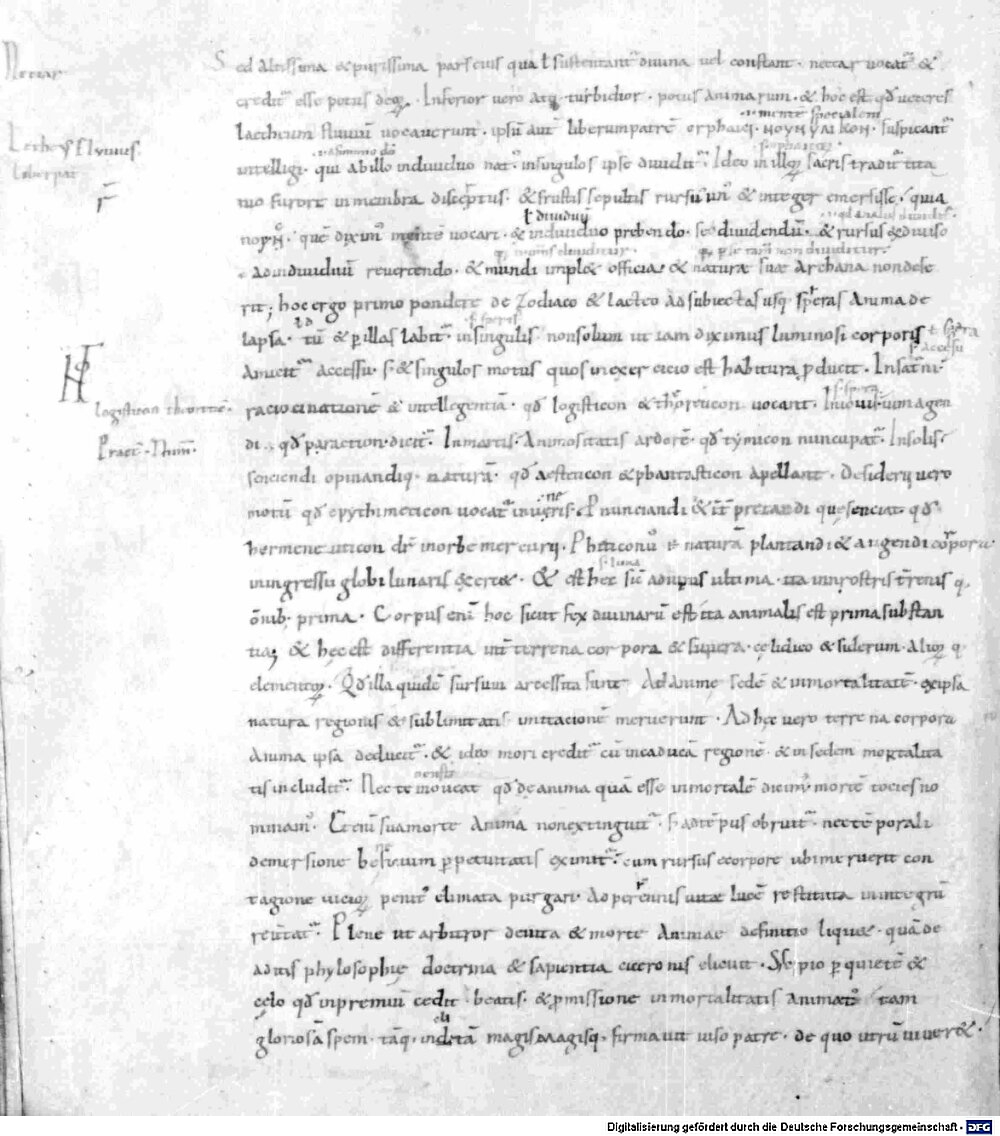 Nectar
Sed altissima & purissima pars eius qua ł sustentant᷑ divina vel constant · nectar vocat᷑ &
credit᷑ esse potus deoꝝ · Inferior vero atq; turbidior · potus animarum · & hoc est qđ veteres
.i. mente specialem
Lętheus fluvius
laetheum fluviū vocaverunt · ipsū aut̄ liberum patrē orphaici · ΝΟΥΝ ΥΛΙΚΟΝ · suspicant᷑
Liber pat̄
intelligi · qui ab illo individuo nat᷒ · in singulos ipse dividit᷑ · Ideo in illoꝝ sacris tradit᷑ tita
nio furore in membra discerptus · & frustis sepultis rursū un᷒ & integer emersisse · quia
ł dividuū
ΝΟΥΣ · quē dixim᷒ mentē vocari · & individuo prebendo · se dividendū · & rursus ex diviso
ad individuū revertendo · & mundi implet officia · & naturae suae archana non dese
rit; hoc ergo primo pondere de zodiaco & lacteo ad subiectas usq; spheras anima de
lapsa · tū & p illas labit᷑ · in singulis non solum ut iam diximus luminosi corporis
amicit᷑ accessu · s; & singulos motus quos in exercicio est habitura p̄ducit · In saturni ·
logisticon theoriticē ·
raciocinationē & intellegentiā · qđ logisticon & theoreticon vocant · In iovis · vim agen
Pract · Thim̄ ·
di · qđ practicon dicit᷑ · In martis · animositatis ardorē · qđ tymicon nuncupat᷑ · In solis ·
senciendi opinandiq; naturā · qđ aestheticon & phantasticon apellant · Desiderii vero
motū qđ epythimeticon vocat᷑ in veneris · P nunciandi & int̄pretandi que senciat · qđ
hermeneuticon dr̄ in orbe mercurii · Phiticon v᷒ · & naturā plantandi & augendi corpora
s· luna
in ingressu globi lunaris exercet · & est hec sic̄ a divinis ultima · ita in nostris t̄renis q;
om̄ib; prima · Corpus enī hoc sicut fex divinarū est ita animalis est prima substan
tia; & hęc est differentia int̄ terrena corpora & supera · cęli dico & siderum · alioꝝ q;
elementoꝝ · Qđ illa quidē sursum arcessita sunt ad animę sedē & inmortalitatē · ex ipsa
natura regionis & sublimitatis imitacionē meruerunt · Ad hęc vero terrena corpora
anima ipsa deducit᷑ · & ideo mori credit᷑ cū in caducā regionē & in sedem mortalita
tis includit᷑ · Nec te moveat qđ de anima quā esse inmortalē dicim᷒ mortē tocies no
minam᷒ · Etenī sua morte anima non extinguit᷑ · s; ad tēpus obruit᷑ · nec tēporali
demersione beneficium ppetuitatis eximit᷑ · cum rursus e corpore ubi meruerit con
tagione vicioꝝ penit᷒ elimata purgari · ad perennis vitae lucē restituta in integrū
revertat᷑ · Plene ut arbitror de vita & morte animae definitio liquet · quā de
aditis phylosophię doctrina & sapientia ciceronis elicuit · S; scipio p quietē &
cęlo qđ in premiū cedit · beatis · & p̄missione inmortalitatis animat᷒ · tam
gloriosā spem · tāq; inclitā magis magisq; firmavit viso patre · de quo utrū viveret ·
Digitalisierung gefördert durch die Deutsche Forschungsgemeinschaft - DFG